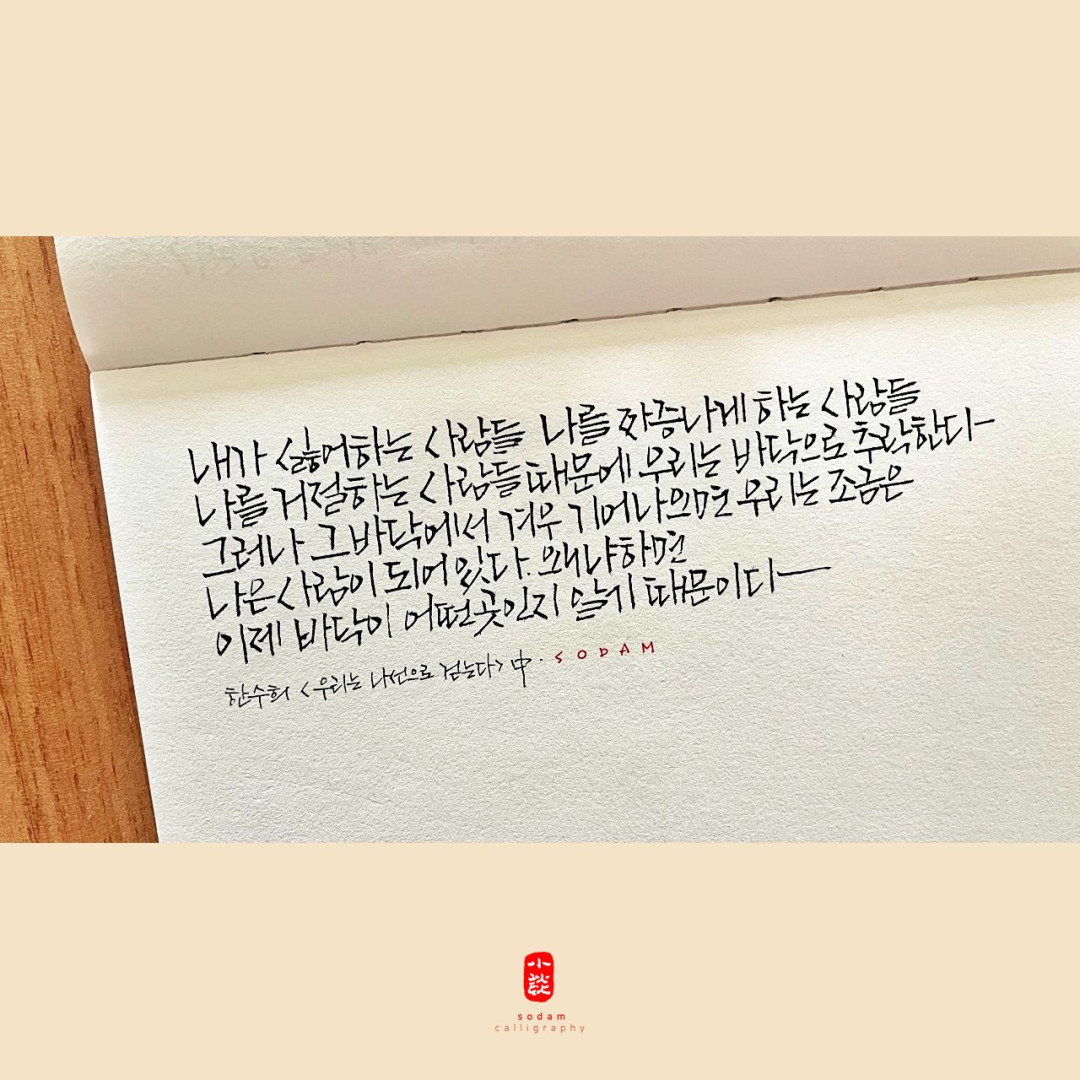 내가 싫어하는 사람들 나를 짜증나게 하는 사람들
나를 거절하는 사람들 때문에 우리는 바닥으로 추락한다
그러나 그 바닥에서 겨우 기어나오면 우리는 조금은
나은 사람이 되어 있다. 왜냐하면
이제 바닥이 어떤 곳인지 알기 때문이다
한수희 <우리는 나선으로 걷는다> 中. SODAM
小談
sodam
calligraphy